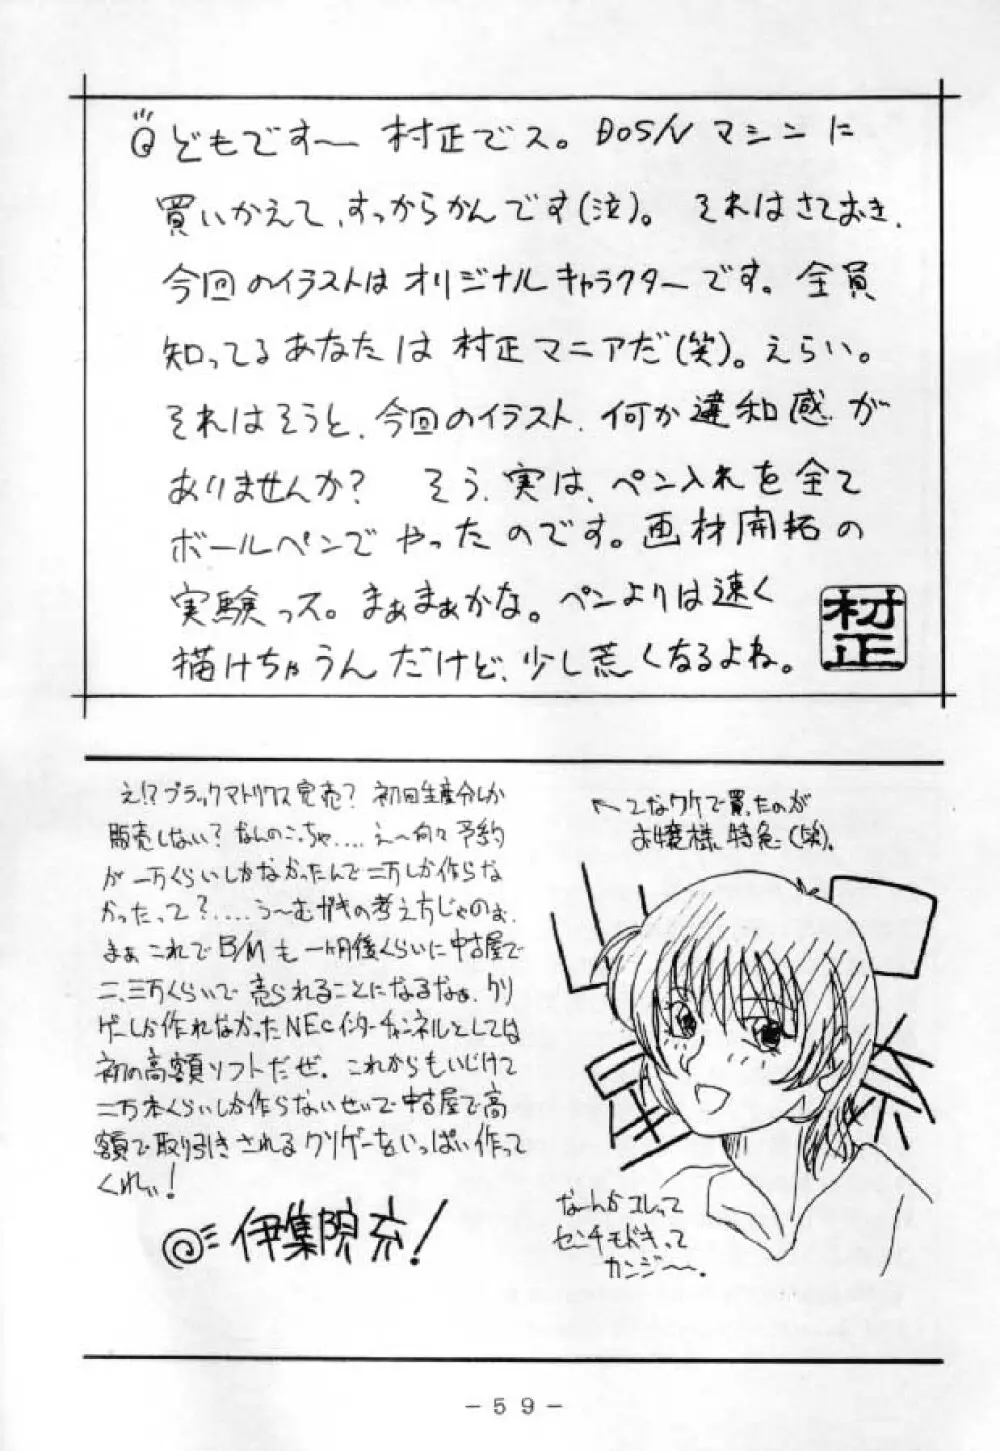 どもです〜 村正でス。DOS/Vマシンに
買いかえて、すっからかんです(泣)。 それはさておき、
今回のイラストはオリジナルキャラクターです。全員
知ってるあなたは村正マニアだ(笑)。えらい。
それはそうと、今回のイラスト、何か違和感が
ありませんか? そう、実は、ペン入れを全て
ボールペンでやったのです。画材開拓の
実験っス。まぁまぁかな。ペンよりは速く
描けちゃうんだけど、少し荒くなるよね。
村正
え!?ブラックマトリクス完売? 初回生産分しか
販売しない?なんのこっちゃ....え〜何々予約
が一万くらいしかなかったんで二万しか作らな
かったって?....う〜むガキの考え方じゃのぉ.
まぁこれでB/Mも一ヶ月後くらいに中古屋で
二、三万くらいで売られることになるなぁ.クリ
ゲーしか作れなかったNECインターチャンネルとしては
初の高額ソフトだぜ. これからもいじけて
二万本くらいしか作らないせいで中古屋で高
額で取り引きされるクソゲーをいっぱい作って
くれぃ!
伊集院
←こなワケで買ったのが
お嬢様特急(笑).
なーんかコレって
センチモドキって
カンジ〜.
-59-